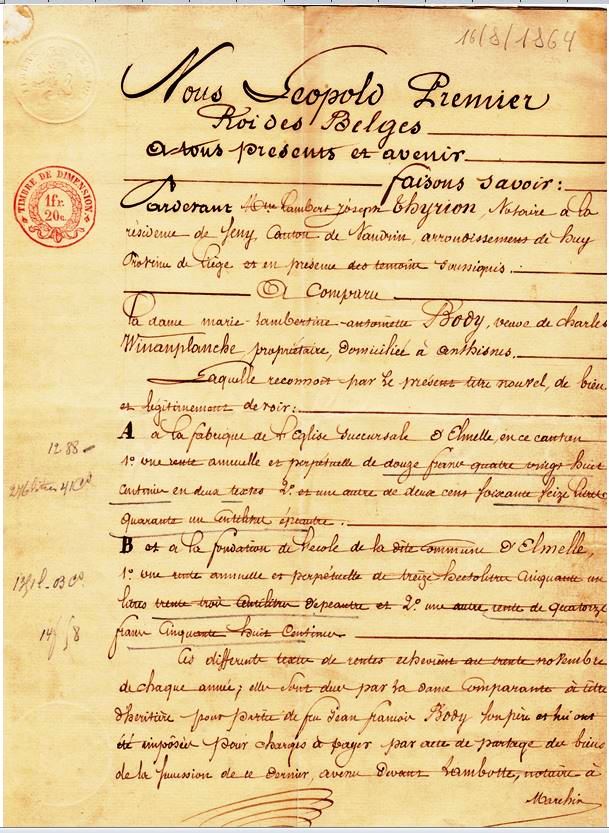 16/8/1864
Nous Leopold Premier
Roi des Belges
A tous présents et avenir
faisons savoir :
TIMBRE DE DIMENSION
1 fr.
20 c.
Pardevant Mtre Lambert Joseph Thyrion, Notaire à la
résidence de Seny, Canton de Nandrin, arrondissement de huy
Province de Liége et en présence des temoins soussignés.
A Comparu
La dame marie-Lambertine-antoinette Body, veuve de charles
Winanplanche, propriétaire, domiciliée à anthisnes.
Laquelle reconnoit par le présent titre nouvel, de bien
et légitimement devoir :
A à la fabrique de l'Eglise succursale d'Elmelle, en ce canton
1° une rente annuelle et perpétuelle de douze francs quatre vingt huit
12 88
centimes en deux textes 2° et une autre de deux cent soixante seize litres
quarante un centilitres épeautre.
B et a la fondation de l'école de la dite commune d'Elmelle,
1° une rente annuelle et perpétuelle de treize hectolitres cinquante un
litres trente trois centilitres d'epeautre et 2° une autre rente de quatorze
francs cinquante huit centimes.
Ces differents textes de rentes echeoient au trente novembre
de chaque année ; elle sont dues par la dame comparante à titre
d'heritière pour partie de feu jean françois Body son père et lui ont
été imposées pour charges à payer par acte de partage des biens
de la succession de ce dernier, avenu devant Lambotte, notaire à
Marchin